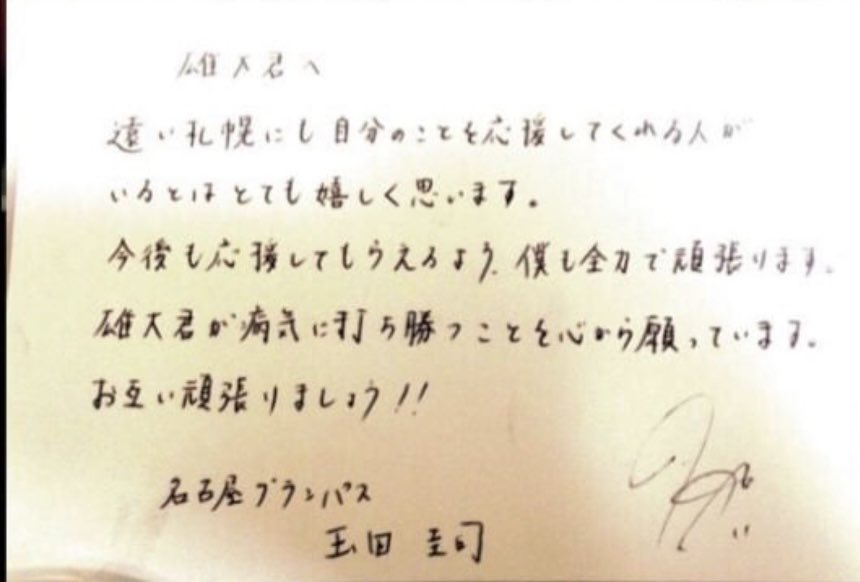 雄大君へ
遠い札幌にも自分のことを応援してくれる人が
いるとはとても嬉しく思います。
今後も応援してもらえるよう、僕も全力で頑張ります。
雄大君が病気に打ち勝つことを心から願っています。
お互い頑張りましょう!!
名古屋グランパス
玉田 圭司